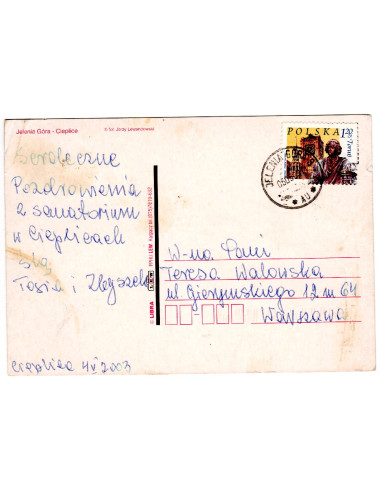 Jelenia Góra - Cieplice
© fot. Jerzy Lewandowski
Serdeczne
Pozdrowienia
z sanatorium
w Cieplicach
ślą
Tosia i Zbyszek
Cieplice 4 V 2003
© LIBRA
POLSKA 1,20
JELENIA GÓRA
W-na Pani
Teresa Walowska
ul Gierymskiego 12 m 64
Warszawa